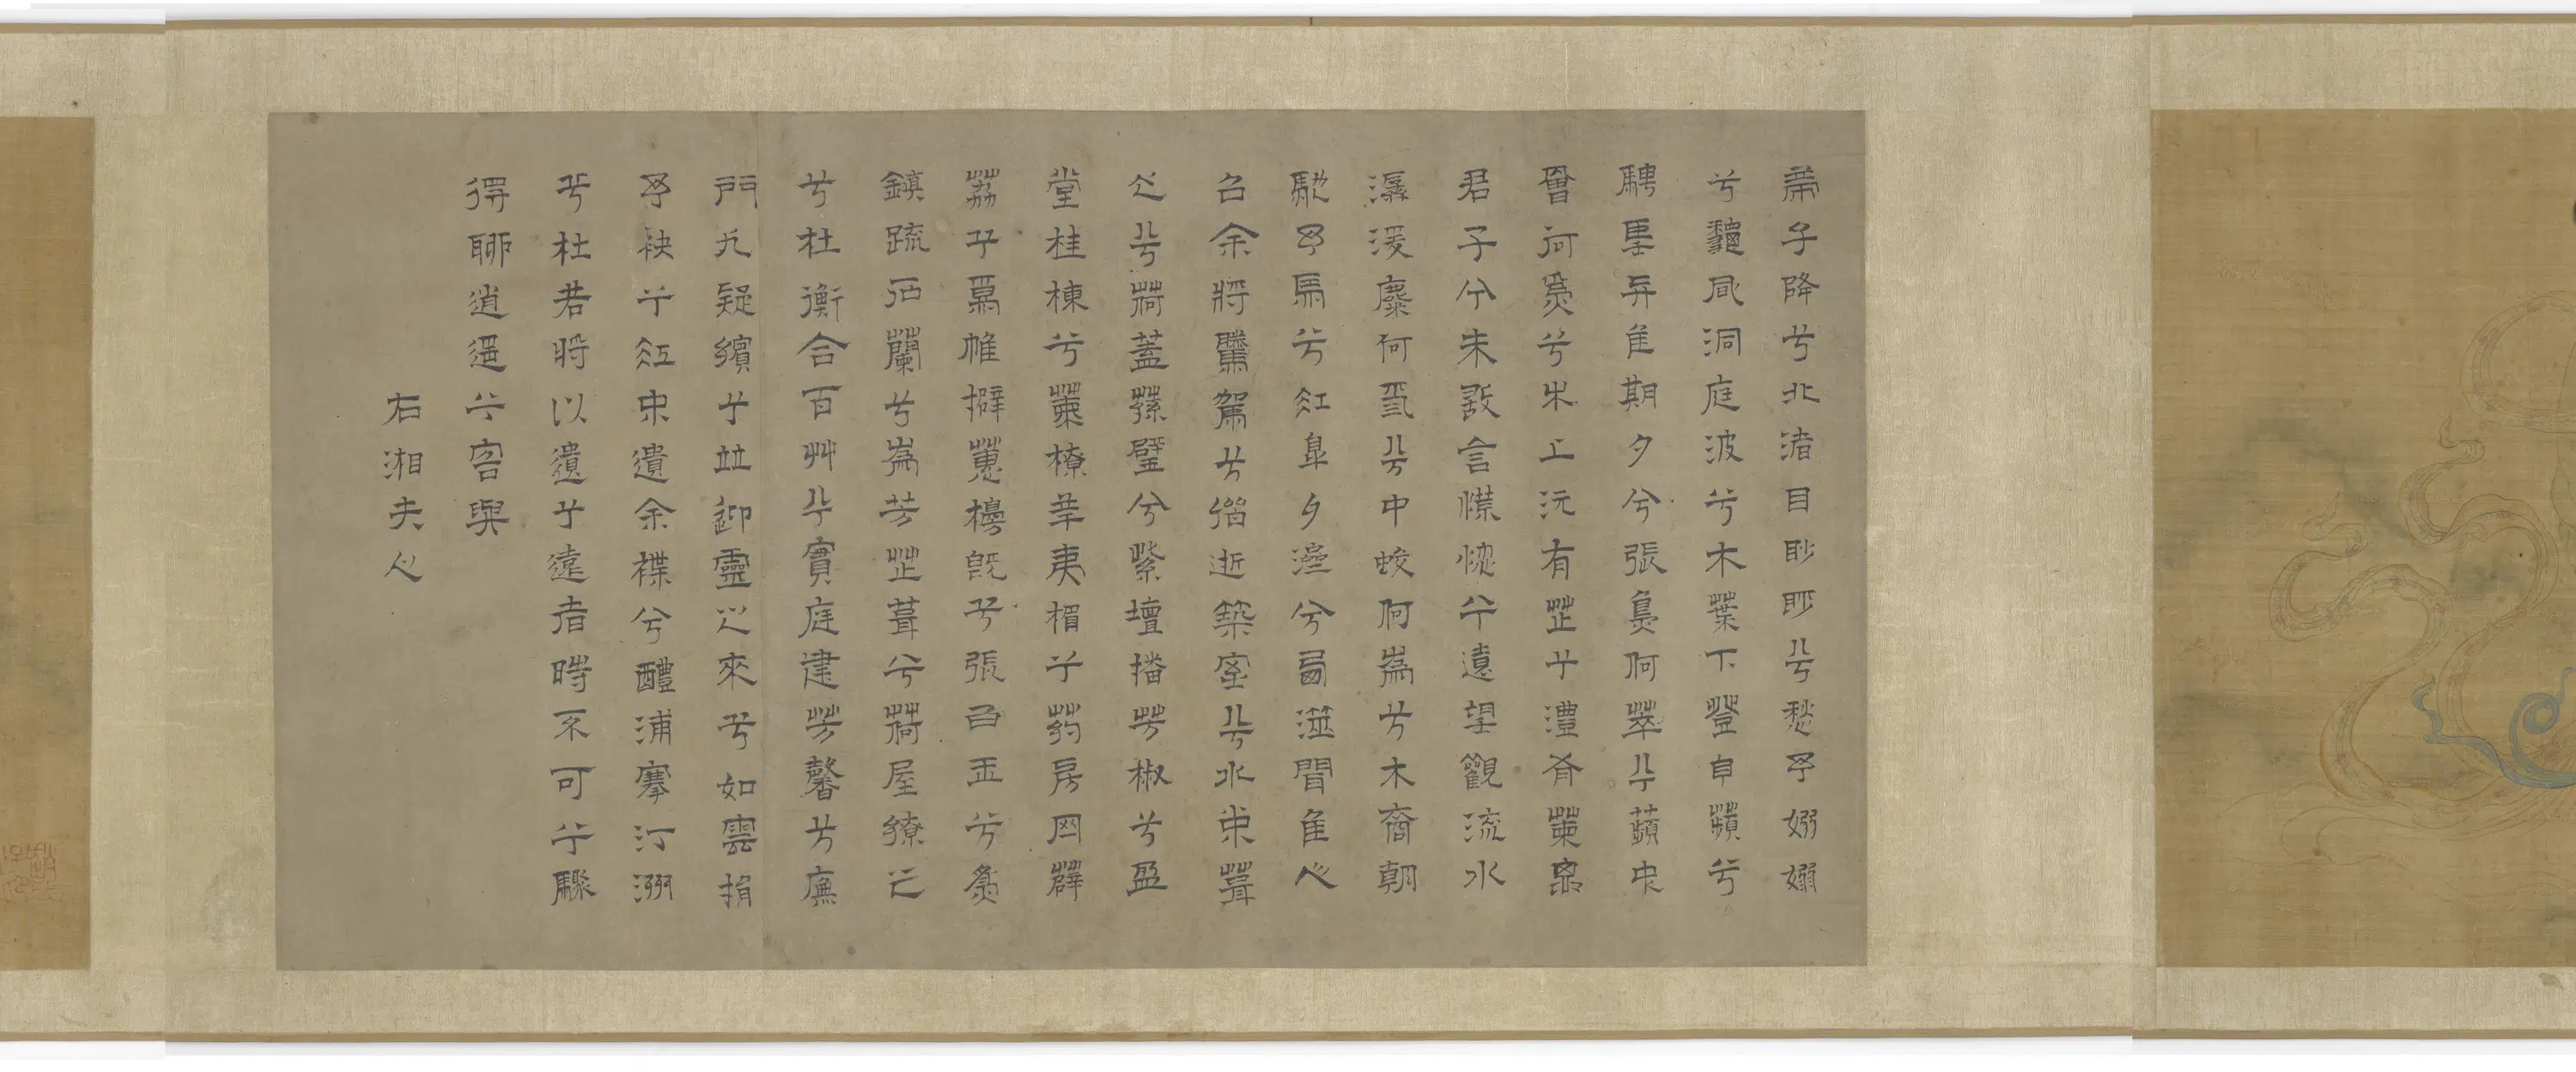 帝子降兮北渚目眇眇兮愁予嫋嫋
兮龝風洞庭波兮木葉下登白蘋兮
騁望與佳期夕兮張鳥何萃兮蘋中
罾何為兮木上沅有芷兮澧有蘭思
君子兮未敢言慌惚兮遠望觀流水
潺湲麋何食兮中蛟何為兮水裔朝
馳予馬兮江皋夕濟兮西澨聞佳人
召余將騰駕兮偕逝築室兮水中葺
之兮荷蓋蓀壁兮紫壇播芳椒兮盈
堂桂棟兮蘭橑辛夷楣兮葯房罔薜
荔兮為帷擗蕙櫋既兮張白玉兮為
鎮疏石蘭兮為芳芷葺兮荷屋繚之
兮杜衡合百艸兮實庭建芳馨兮廡
門九疑繽兮並迎靈之來兮如雲捐
予袂兮江中遺余褋兮醴浦搴汀洲
兮杜若將以遺兮遠者時不可兮驟
得聊逍遙兮容與
右湘夫人